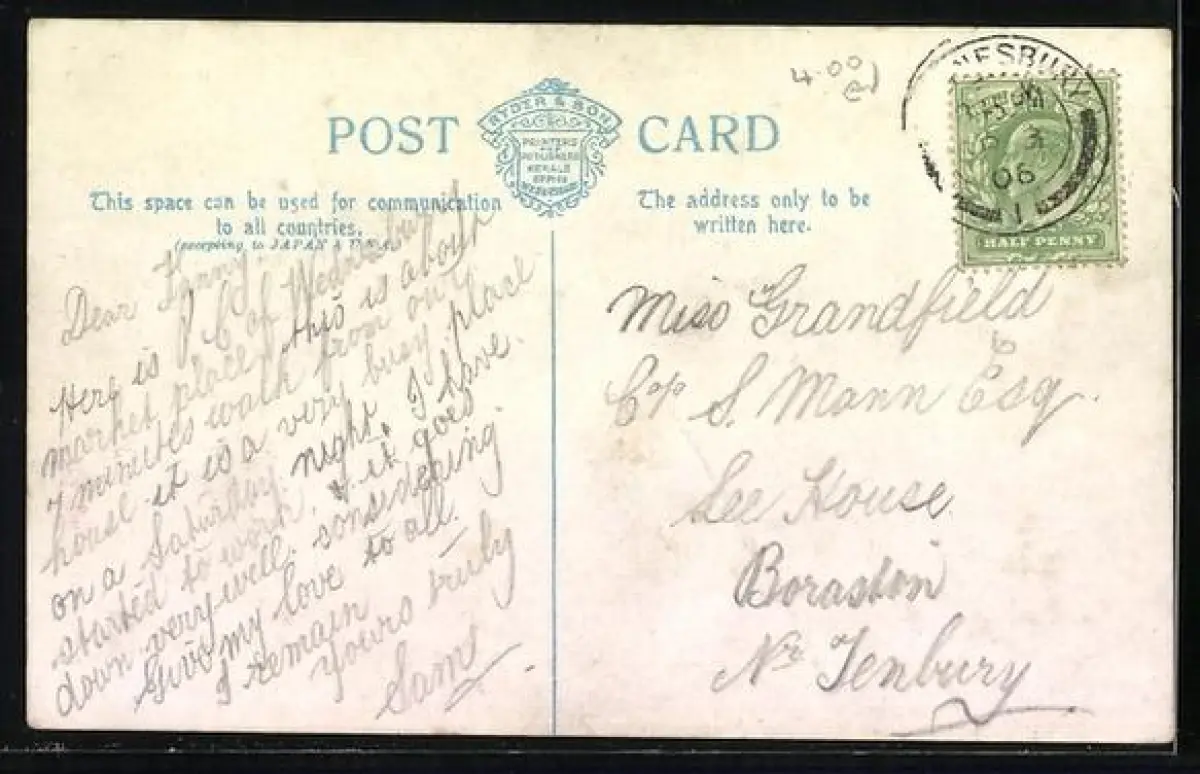 POST CARD
RYDER & SON
PRINTERS
AND
PUBLISHERS
HERALD
OFFICE
WEDNESBURY
This space can be used for communication
to all countries,
(excepting to JAPAN & U.S.A.)
The address only to be
written here.
4.00
NESBURY
06
HALF PENNY
Dear
Here is P C of Wednesbury
market place this is about
7 minutes walk from our
house it is a very busy place
on a Saturday night. I have
started to work, & it goes
down very well. considering
Give my love to all.
I remain
yours truly
Sam
Miss Grandfield
C/o S. Mann Esq.
Lee House
Boraston
Nr Tenbury